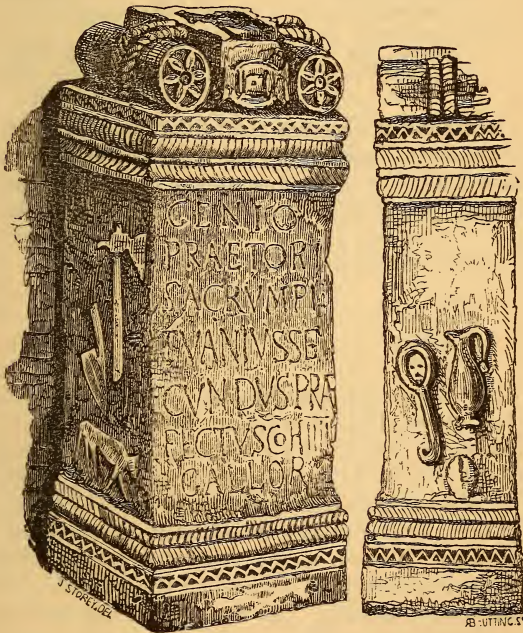 GENIO
PRAETORI
SACRVM PI
TVANIVS SE
CVNDVS PRÆ
FECTVS COH IIII
GALLOR
J STOREY. DEL
RB. UTTING. S